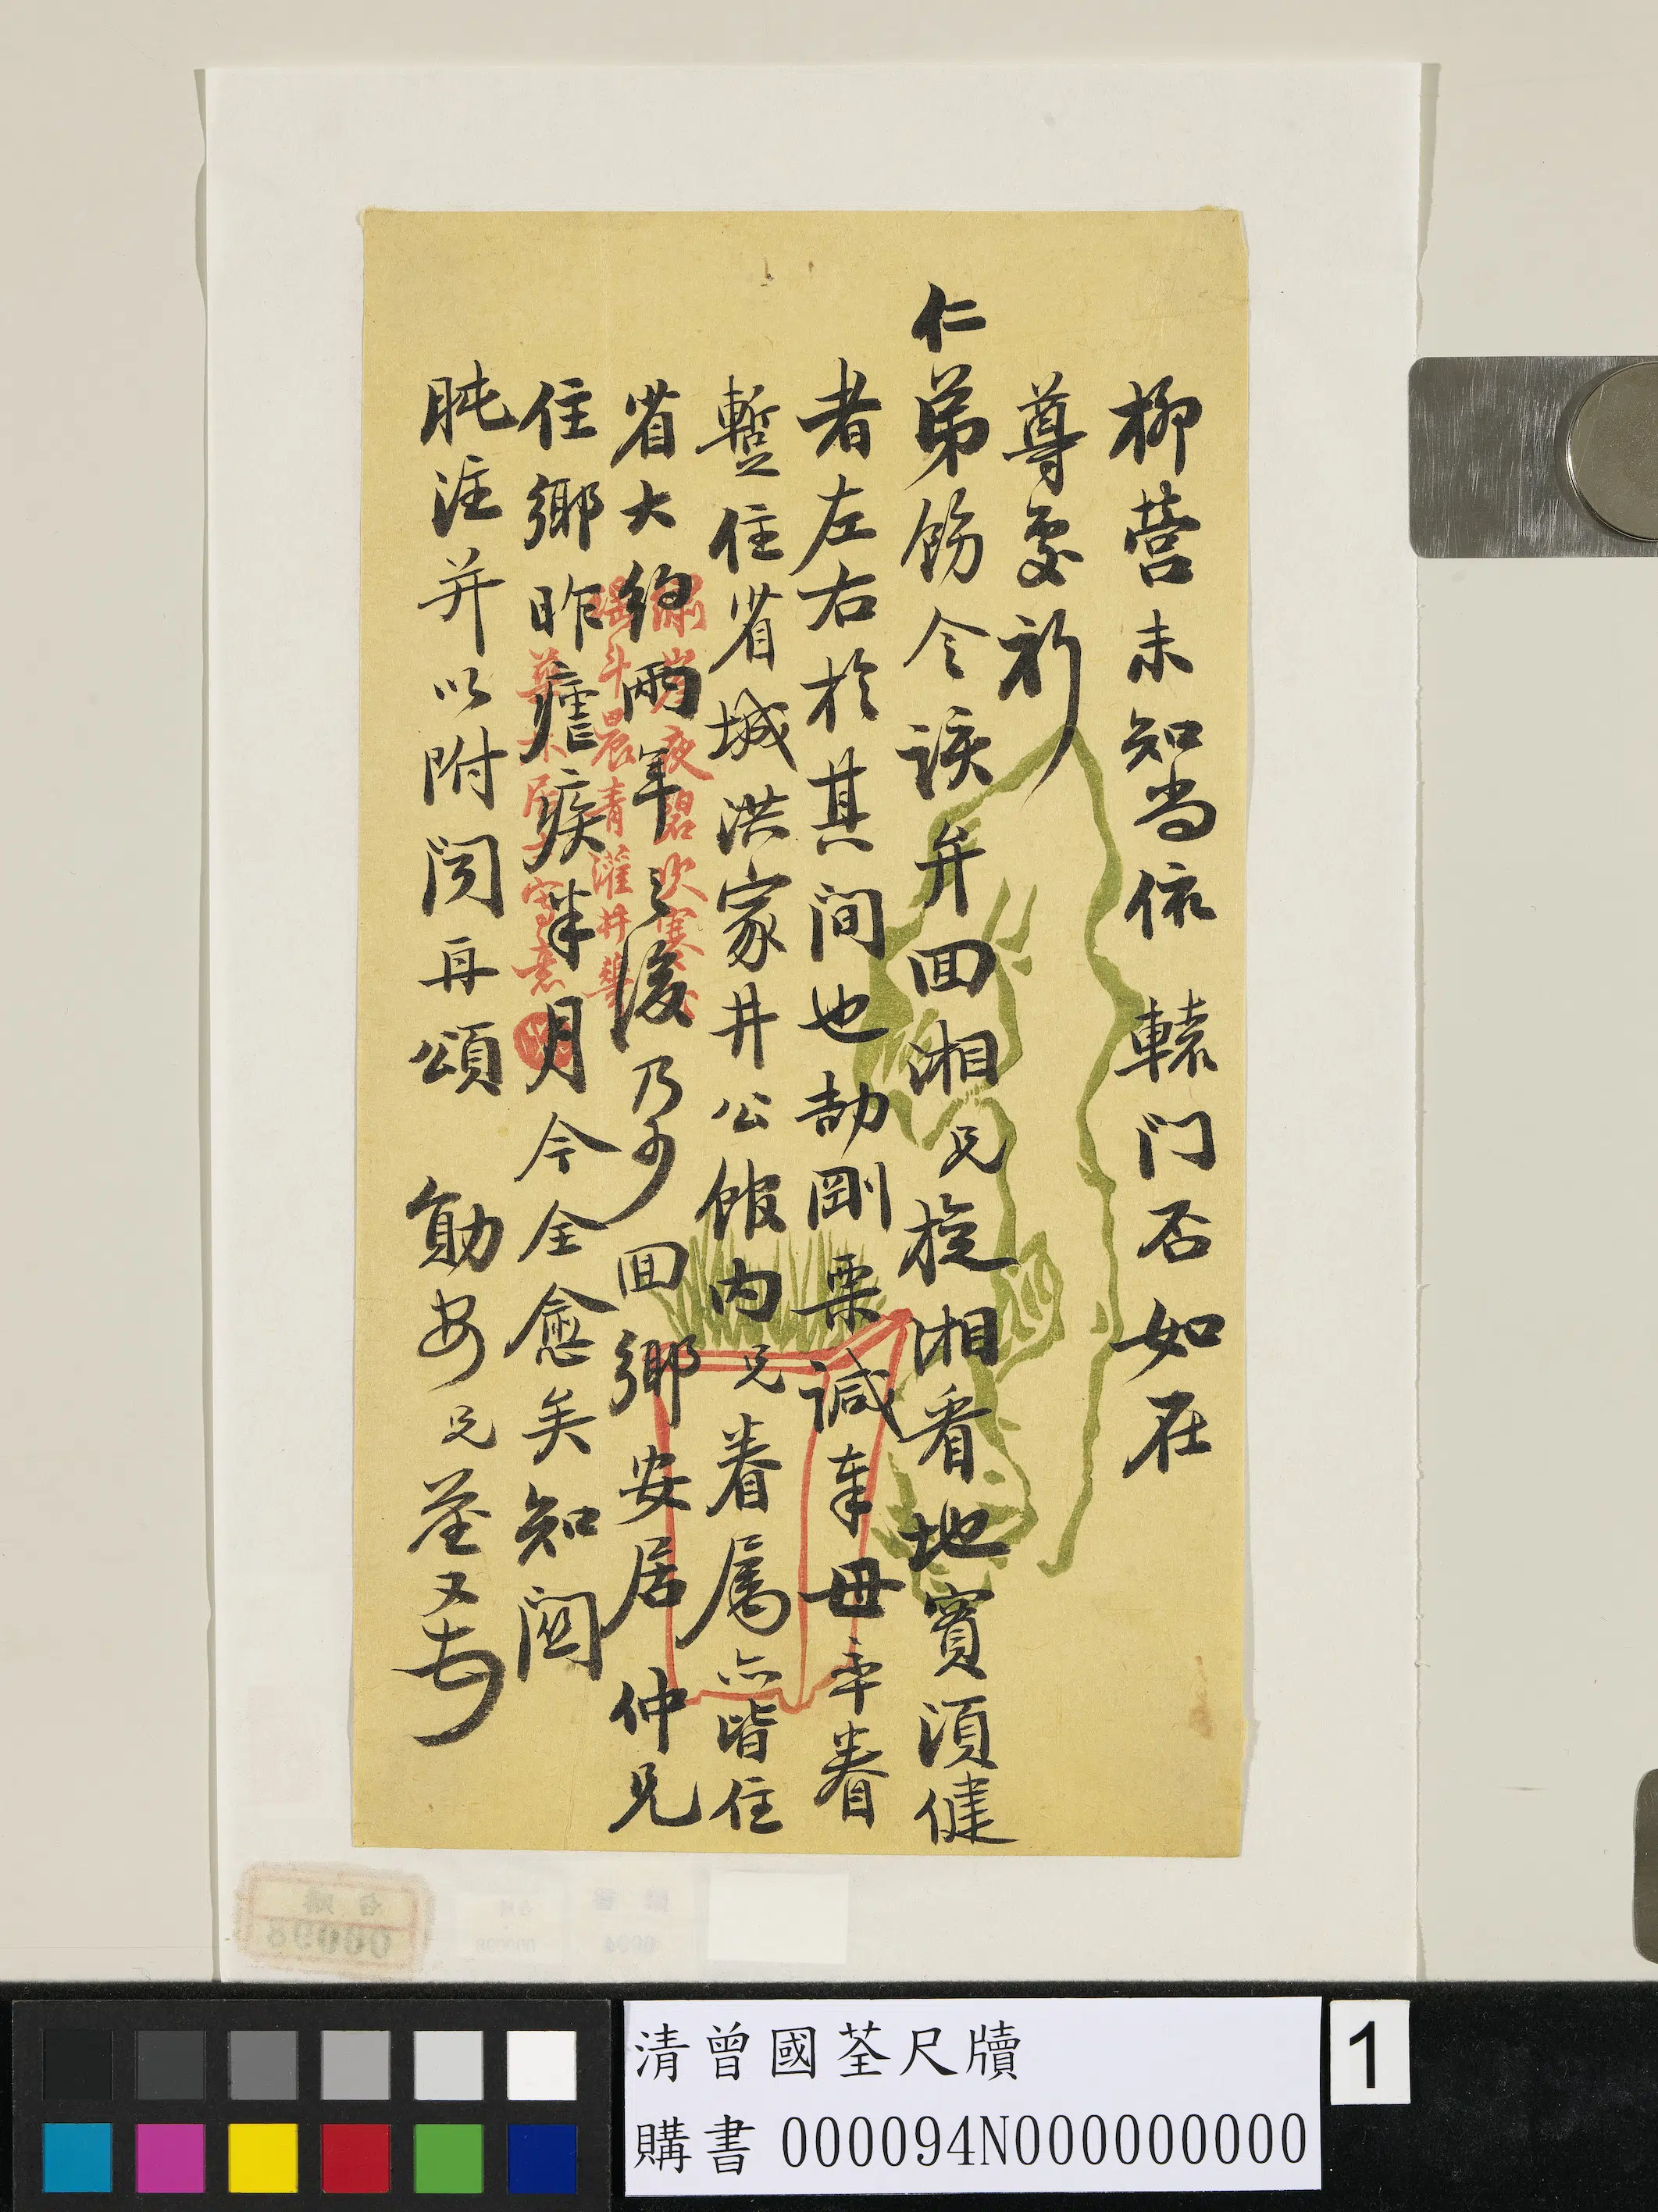 柳營未知尚依轅门否如在
尊處祈
仁弟飭令該弁回湘兄旋湘看地實須健
者左右於其间也劼剛栗諴奉母率眷
暫住省城洪家井公館内兄眷属亦皆住
省大約兩年之後乃少回鄉安居仲兄
住鄉昨瘧疾半月今全愈矣知関
肫注并以附闻再頌勛安兄荃又頓
清曾國荃尺牘
購書 000094N000000000
1